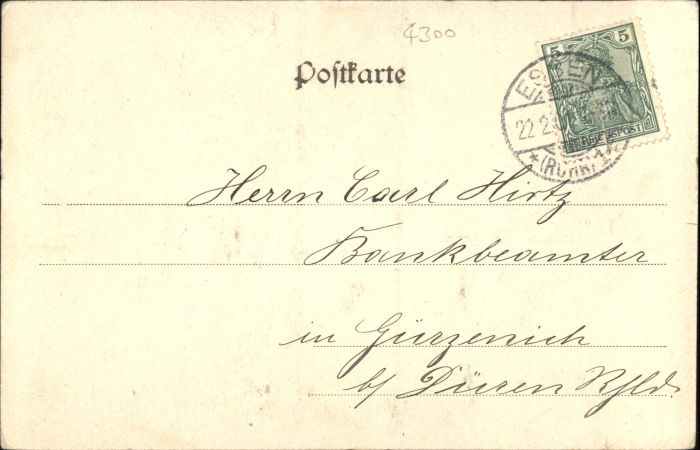 4300
Postkarte
5 5
REICHSPOST
ESSEN
22.2.
*(RUHR)1*
Herrn Carl Hirtz
Bankbeamter
in Gürzenich
b/ Düren Rhld.